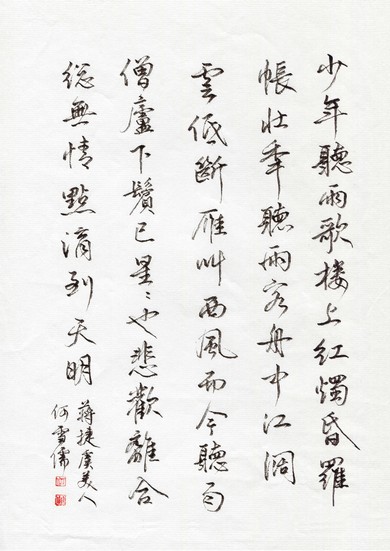 少年聽雨歌楼上红燭昏羅
帳壯秊聽雨客舟中江濶
雲低斷雁叫西風而今聽雨
僧廬下鬢已星〻也悲歡離合
総無情點滴到天明
蔣捷虞美人
何雪儒